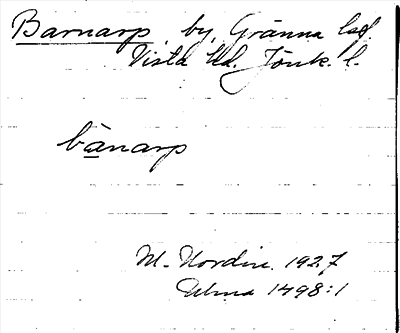 Barnarp, by, Gränna lsf.
Vista hd. Jönk. l.
bànarp
M. Nordin. 1927
Ulma 1498:1